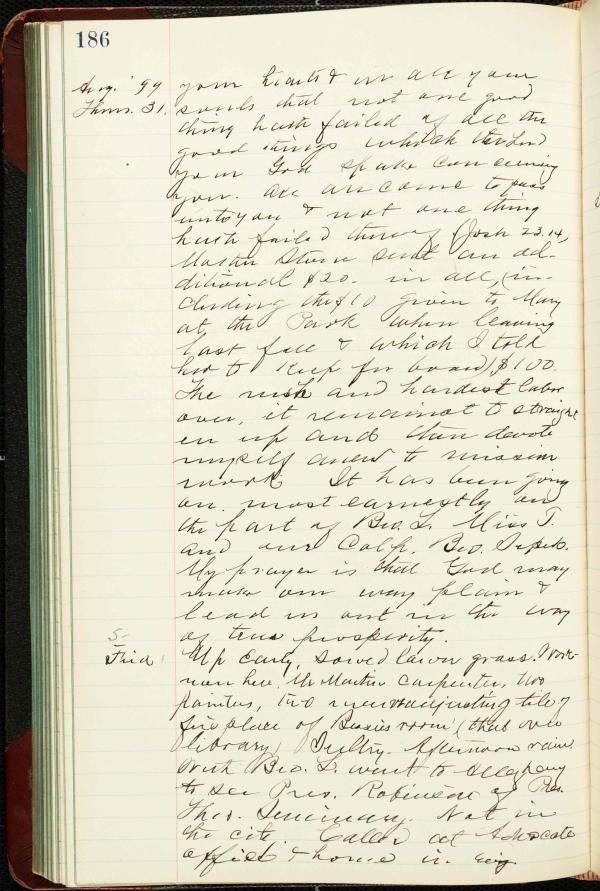 186
Aug. '99 your hearts & in all your
Thurs. 31. souls that not one good
thing hath failed of all the
good things which the Lord
your God spake concerning
you. all are come to pass
unto you & not one thing
hath failed thereof (Josh 23.14,
Master Storm sent an ad-
ditional $20. in all, (in-
cluding the $10 given to Mary
at the Park when leaving
last fall & which I told
her to keep for board) $100.
The rush and hardest labor
over, it remains to straight
en up and then devote
myself anew to mission
work. It has been going
on most earnestly on
the part of Bro. L. Miss T.
and our Colp. Bro.
My prayer is that God may
make our way plain &
lead us out in the way
of true prosperity.
S-
Frid 1 Up early, sowed lawn grass. Work-
men here. Mr Martin Carpenter, two
painters, two men readjusting tile of
fire place of Bessies room (that over
library) Sultry. Afternoon rain.
With Bro. L. went to Allegheny
to see Pres. Robinson of Pres.
Theo. Seminary. Not in
the city. Called at Advocate
office & home in evg.